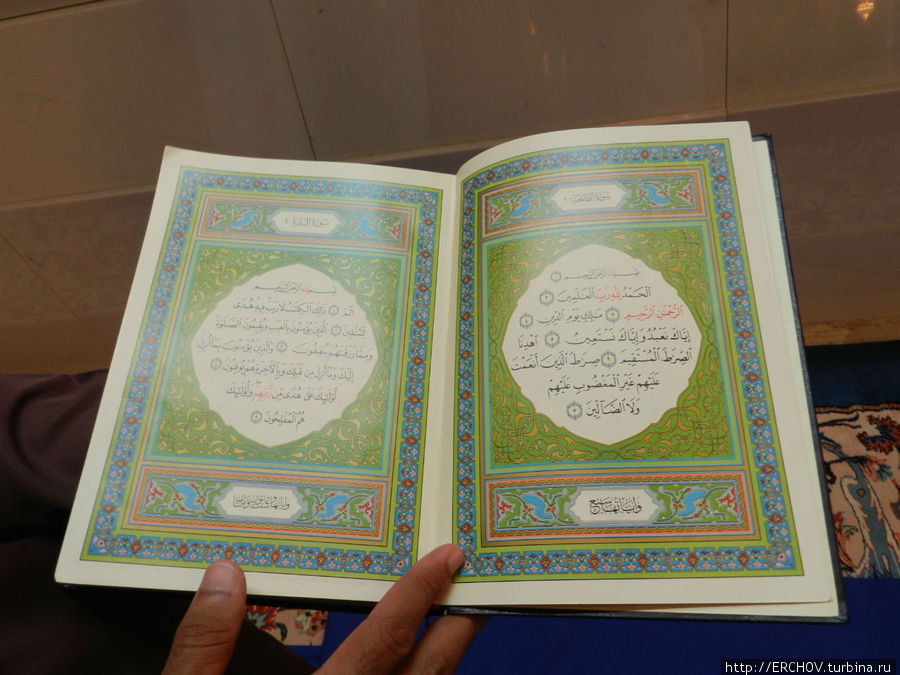 سورة الفاتحة ١
بسم الله الرحمن الرحيم ١
الحمد لله رب العلمين ٢
الرحمن الرحيم ٣ ملك يوم الدين ٤
إياك نعبد وإياك نستعين ٥ اهدنا
الصرط المستقيم ٦ صرط الذين أنعمت
عليهم غير المغضوب عليهم
ولا الضالين ٧
وآياتها سبع
سورة البقرة ٢
بسم الله الرحمن الرحيم
الم ١ ذلك الكتب لا ريب فيه هدى
للمتقين ٢ الذين يؤمنون بالغيب ويقيمون الصلوة
ومما رزقنهم ينفقون ٣ والذين يؤمنون بما أنزل
إليك وما أنزل من قبلك وبالآخرة هم يوقنون ٤
أولئك على هدى من ربهم وأولئك
هم المفلحون ٥
وآياتها ست وثمانون ومائتان
http://ERCHOV.turbina.ru